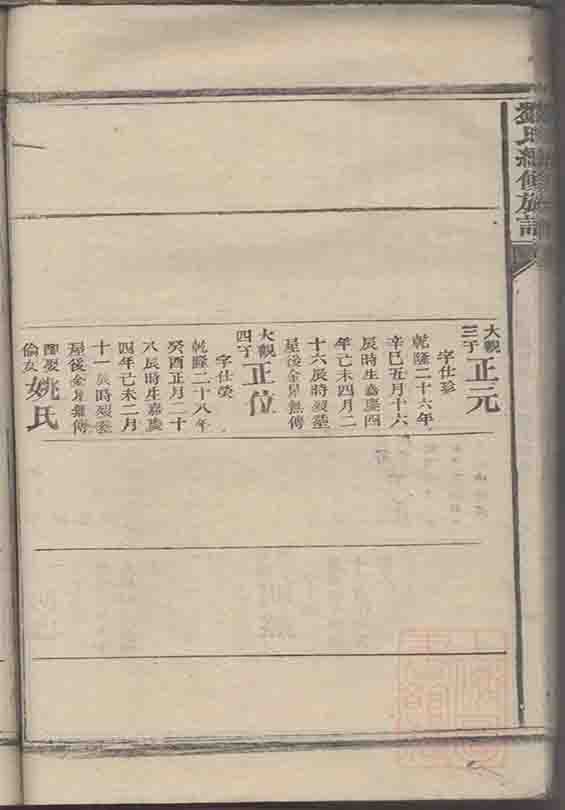 劉氏續修族譜
大觀三子 正元
字仕珍
乾隆二十六年
辛巳五月十六
辰時生嘉慶四
年己未四月二
十六辰時歿塟
屋後金星無傳
大觀四子 正位
字仕榮
乾隆二十八年
癸酉正月二十
八辰時生嘉慶
四年己未二月
十一辰時歿塟
屋後金星無傳
酉聚
倫女 姚氏